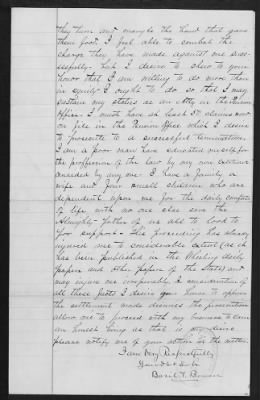 they turn and manifs the hand that gave
them food I feel able to combat the
charge they have made against me suc-
cessfully. but I desire to show to your
honor that I am willing to do more than
in equity I ought to do so that I may
sustain my status as an atty in the Pension
Office. I must have at least 50 claims now
on file in the Pension Office which I desire
to prosecute to a successful termination
I am a poor man have educated myself for
the proffession of the law by my own exertions
unaided by any one. I have a family a
wife and four small children who are
dependent upon me for the daily comforts
of life with no one else save the
Almighty Father of us all to look to
for support. This proceeding has already
injured me to considerable extent (as it
has been published in the Wheeling daily
papers and other papers of the State) and
may injure me irreparably. In consideration of
all these facts I desire your honor to approve
the settlement made dismiss the prosecution
allow me to proceed with my business to earn
an honest living as that is my desire
please notify me of your action in the matter.
I am Very Respectfully
Your Obt Servt
Basil T. Bowers